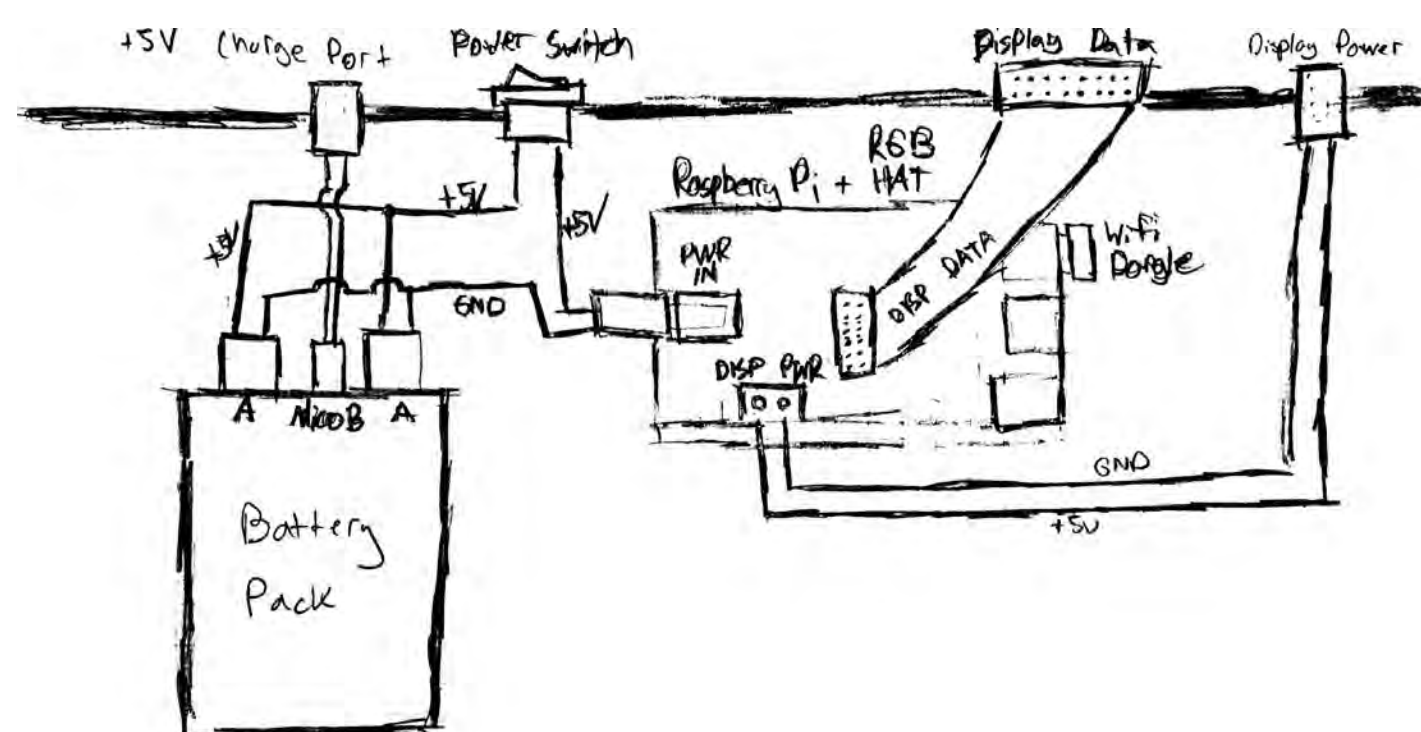 +5V Charge Port
Power Switch
Display Data
Display Power
RGB
Raspberry Pi + HAT
+5V
+5V
+5V
PWR
IN
Wifi
Dongle
DISP DATA
GND
DISP PWR
A
Micro B
A
GND
+5V
Battery
Pack